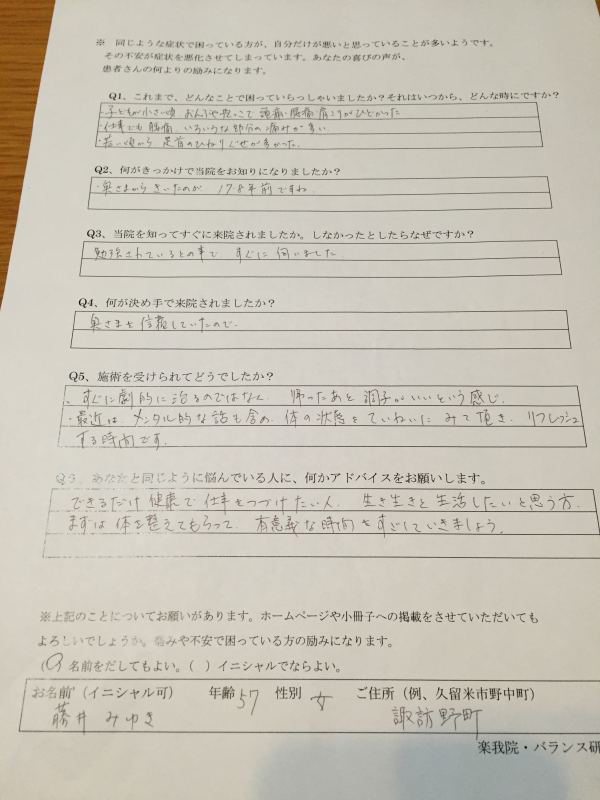 ※ 同じような症状で困っている方が、自分だけが悪いと思っていることが多いようです。
その不安が症状を悪化させてしまっています。あなたの喜びの声が、
患者さんの何よりの励みになります。
Q1、これまで、どんなことで困っていらっしゃいましたか?それはいつから、どんな時にですか?
・子どもが小さい頃 おんぶや抱っこで 頭痛・腰痛・肩こりがひどかった
・仕事でも腰痛、いろいろな部分の痛みが多い
・若い頃から 足首のひねりぐせが多かった。
Q2、何がきっかけで当院をお知りになりましたか?
・奥さまからきいたのが 17.8年前ですね
Q3、当院を知ってすぐに来院されましたか。しなかったとしたらなぜですか?
勉強されているとの事で、すぐに伺いました
Q4、何が決め手で来院されましたか?
奥さまを信頼していたので。
Q5、施術を受けられてどうでしたか?
、すぐに劇的に治るのではなく、帰ったあと調子がいいという感じ。
・最近は、メンタル的な話も含め、体の状態をていねいにみて頂き、リフレッシュ
する時間です。
あなたと同じように悩んでいる人に、何かアドバイスをお願いします。
できるだけ健康で仕事をつづけたい人、生き生きと生活したいと思う方、
まずは体を整えてもらって、有意義な時間をすごしていきましょう。
※上記のことについてお願いがあります。ホームページや小冊子への掲載をさせていただいても
よろしいでしょうか。痛みや不安で困っている方の励みになります。
(○)名前をだしてもよい。( )イニシャルでならよい。
お名前(イニシャル可) 年齢 57 性別 女 ご住所(例、久留米市野中町)
藤井 みゆき 諏訪野町
楽我院・バランス研